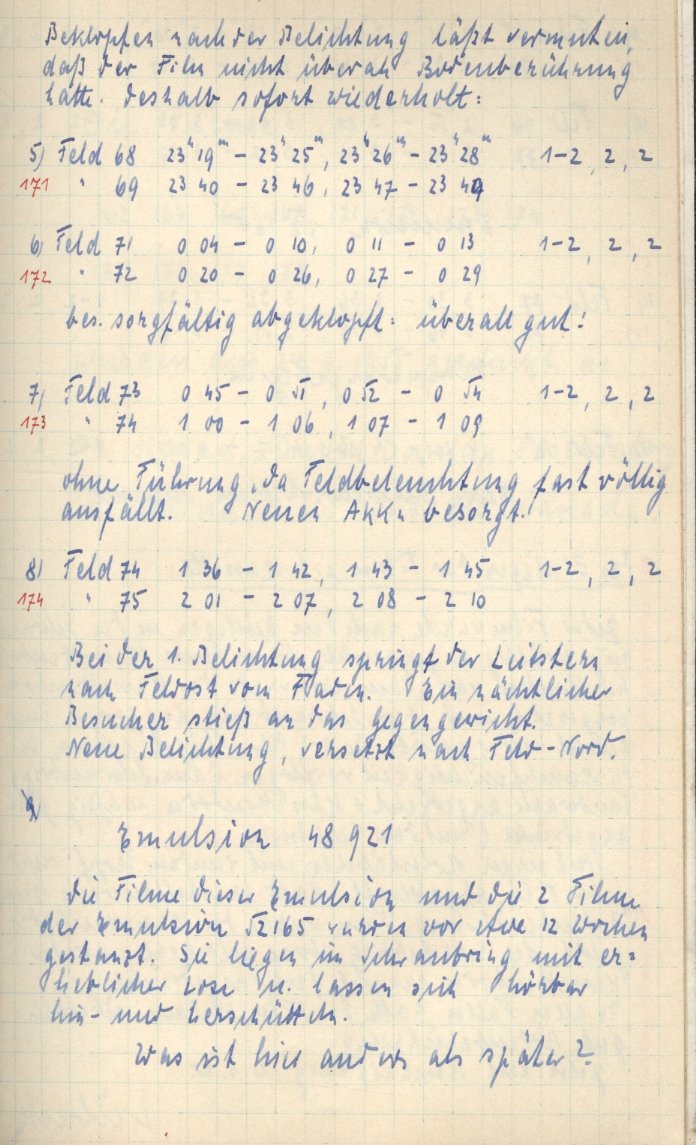 Beklopfen nach der Belichtung läßt vermuten,
daß der Film nicht überall Bodenberührung
hatte. Deshalb sofort wiederholt:
5) Feld 68 23ʰ 19ᵐ – 23ʰ 25ᵐ, 23ʰ 26ᵐ – 23ʰ 28ᵐ 1–2, 2, 2
171 " 69 23 40 – 23 46, 23 47 – 23 49
6) Feld 71 0 04 – 0 10, 0 11 – 0 13 1–2, 2, 2
172 " 72 0 20 – 0 26, 0 27 – 0 29
bes. sorgfältig abgeklopft: überall gut!
7) Feld 73 0 45 – 0 51, 0 52 – 0 54 1–2, 2, 2
173 " 74 1 00 – 1 06, 1 07 – 1 09
ohne Führung, da Feldbeleuchtung fast völlig
ausfällt. Neuen Akku besorgt.
8) Feld 74 1 36 – 1 42, 1 43 – 1 45 1–2, 2, 2
174 " 75 2 01 – 2 07, 2 08 – 2 10
Bei der 1. Belichtung springt der Leitstern
nach Feldost vom Faden. Ein nächtlicher
Besucher stieß an das Gegengewicht.
Neue Belichtung, versetzt nach Feld-Nord.
Emulsion 48 921
Die Filme dieser Emulsion und die 2 Filme
der Emulsion 52165 wurden vor etwa 12 Wochen
gestanzt. Sie liegen im Schraubring mit er=
heblicher Lose u. lassen sich hörbar
hin- und herschütteln.
Was ist hier anders als später?